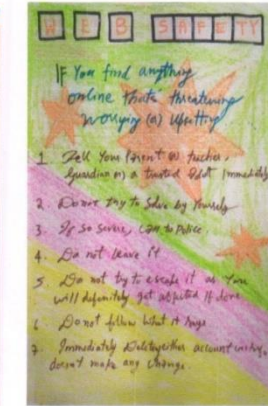 WEB SAFETY
If You find anything
online thats threatening
worrying (or) upsetting
1. Tell Your Parent (or) teacher,
guardian (or) a trusted Adult Immediately
2. Do not try to Solve by Yourself
3. If So Serious, to Police
4. Do not leave it
5. Do not try to escape it as You
will definitely get affected If done
6. Do not follow What it Says
7. Immediately account
doesn't make any Change.